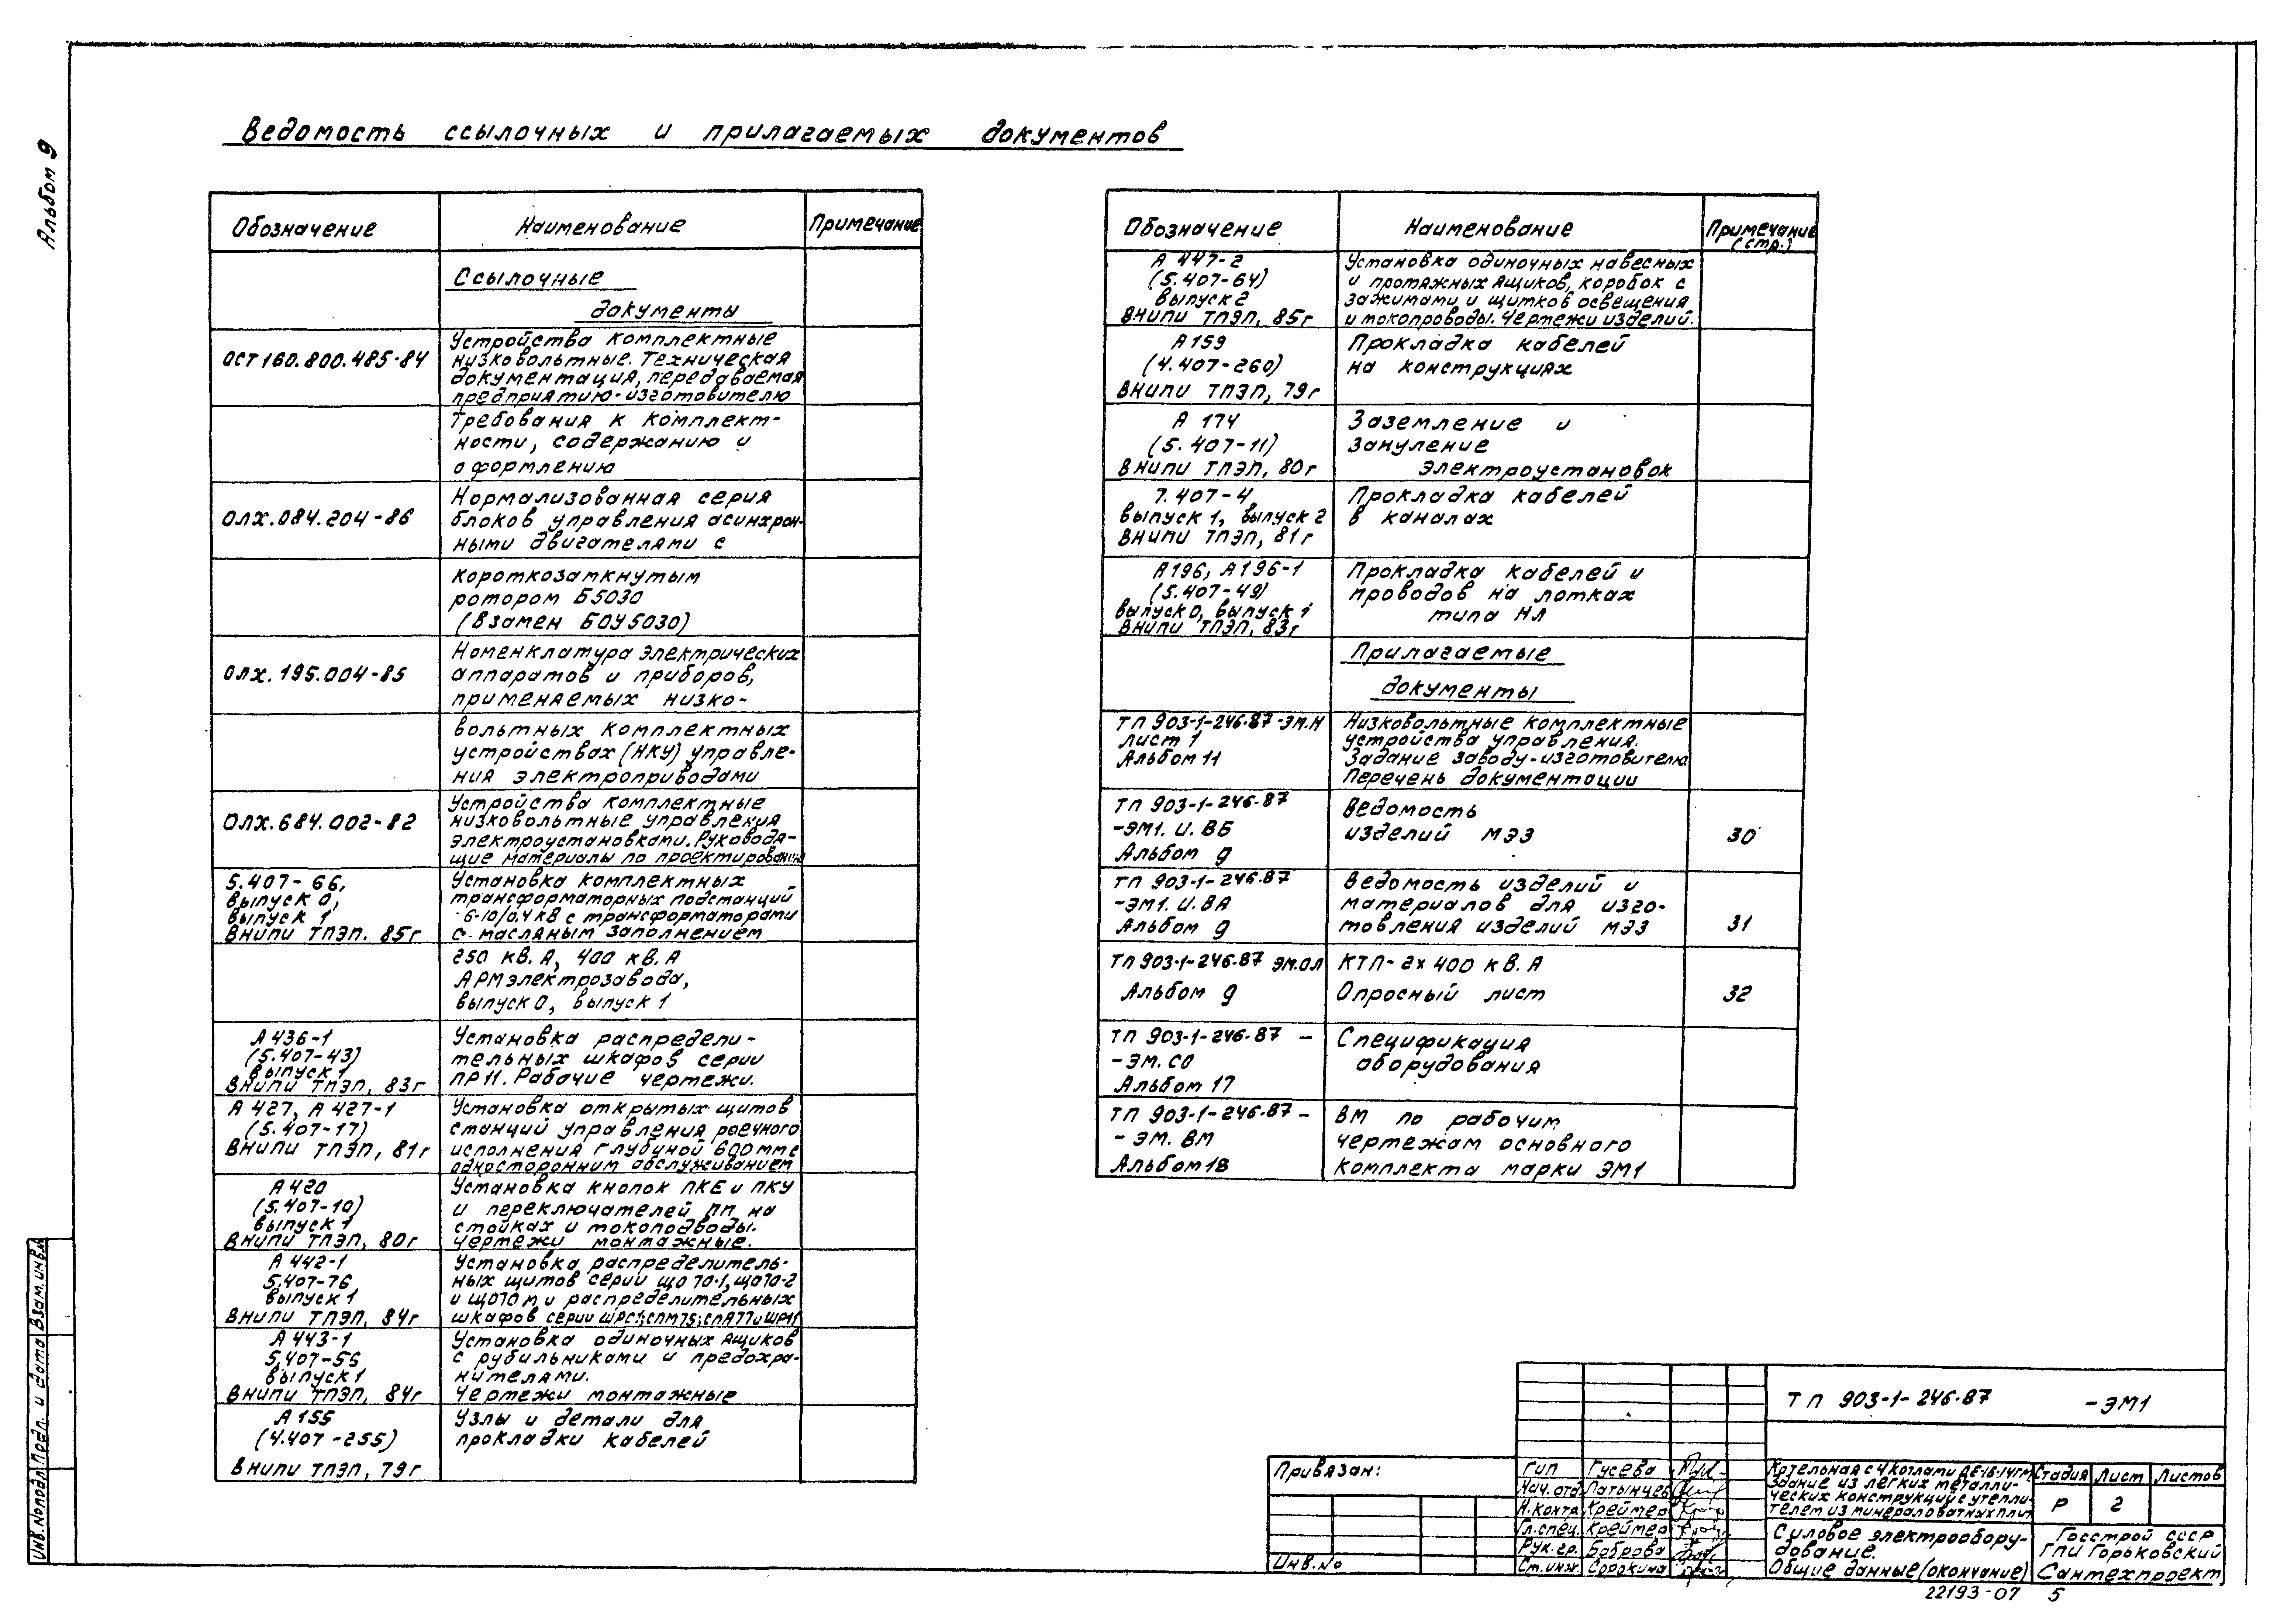 Альбом 9
Ведомость ссылочных и прилагаемых документов
Обозначение
Наименование
Примечание
Ссылочные
документы
ОСТ 160.800.485-84
Устройства комплектные
низковольтные. Техническая
документация, передаваемая
предприятию-изготовителю
Требования к комплект-
ности, содержанию и
оформлению
ОЛХ.084.204-86
Нормализованная серия
блоков управления асинхрон-
ными двигателями с
короткозамкнутым
ротором Б5030
(взамен БОУ5030)
ОЛХ.195.004-85
Номенклатура электрических
аппаратов и приборов,
применяемых низко-
вольтных комплектных
устройствах (НКУ) управле-
ния электроприводами
ОЛХ.684.002-82
Устройства комплектные
низковольтные управления
электроустановками. Руководя-
щие материалы по проектированию
5.407-66,
выпуск 0,
выпуск 1
ВНИПИ ТПЭП. 85г
Установка комплектных
трансформаторных подстанций
6-10/0,4 кВ с трансформаторами
с масляным заполнением
250 кВ.А, 400 кВ.А
АРМэлектрозавода,
выпуск 0, выпуск 1
А 436-1
(5.407-43)
выпуск 1
ВНИПИ ТПЭП, 83г
Установка распредели-
тельных шкафов серии
ПР11. Рабочие чертежи.
А 427, А 427-1
(5.407-17)
ВНИПИ ТПЭП, 81г
Установка открытых щитов
станций управления реечного
исполнения глубиной 600 мм с
односторонним обслуживанием
А 420
(5.407-10)
выпуск 1
ВНИПИ ТПЭП, 80г
Установка кнопок ПКЕ и ПКУ
и переключателей ПП на
стойках и токоподводы.
Чертежи монтажные.
А 442-1
5.407-76
выпуск 1
ВНИПИ ТПЭП, 84г
Установка распределитель-
ных щитов серии ЩО 70-1, ЩО70-2
и ЩО70М и распределительных
шкафов серии ШРС1; СПМ75; СПА77 и ШР11
А 443-1
5.407-55
выпуск 1
ВНИПИ ТПЭП, 84г
Установка одиночных ящиков
с рубильниками и предохра-
нителями.
Чертежи монтажные
А 155
(4.407-255)
ВНИПИ ТПЭП, 79г
Узлы и детали для
прокладки кабелей
Обозначение
Наименование
Примечание
(стр.)
А 447-2
(5.407-64)
выпуск 2
ВНИПИ ТПЭП, 85г
Установка одиночных навесных
и протяжных ящиков, коробок с
зажимами и щитков освещения
и токопроводы. Чертежи изделий.
А159
(4.407-260)
ВНИПИ ТПЭП, 79г
Прокладка кабелей
на конструкциях
А 174
(5.407-11)
ВНИПИ ТПЭП, 80г
Заземление и
зануление
электроустановок
7.407-4
выпуск 1, выпуск 2
ВНИПИ ТПЭП, 81г
Прокладка кабелей
в каналах
А196, А196-1
(5.407-49)
выпуск 0, выпуск 1
ВНИПИ ТПЭП, 83г
Прокладка кабелей и
проводов на лотках
типа НЛ
Прилагаемые
документы
ТП 903-1-246.87-ЭМ.Н
лист 1
Альбом 11
Низковольтные комплектные
устройства управления.
Задание заводу-изготовителю
Перечень документации
ТП 903-1-246.87
-ЭМ1. И. ВБ
Альбом 9
Ведомость
изделий МЭЗ
30
ТП 903-1-246.87
-ЭМ1. И. ВА
Альбом 9
Ведомость изделий и
материалов для изго-
товления изделий МЭЗ
31
ТП 903-1-246.87 ЭМ.ОЛ
Альбом 9
КТП-2х400 кВ.А
Опросный лист
32
ТП 903-1-246.87 -
-ЭМ. СО
Альбом 17
Спецификация
оборудования
ТП 903-1-246.87 -
- ЭМ. ВМ
Альбом 18
ВМ по рабочим
чертежам основного
комплекта марки ЭМ1
Инв.№подл. Подп. и дата Взам.инв.№
Привязан:
Инв.No
ГИП Гусева
Нач.отд Латынцев
Н.контр Креймер
Гл.спец. Креймер
Рук.гр. Боброва
Ст.инж. Сорокина
ТП 903-1-246.87 -ЭМ1
Котельная с 4 котлами ДЕ-16-14ГМ
Здание из легких металли-
ческих конструкций с утепли-
телем из минераловатных плит
Стадия Лист Листов
Р 2
Силовое электрообору-
дование.
Общие данные (окончание)
Госстрой СССР
ГПИ Горьковский
Сантехпроект
22193-07 5